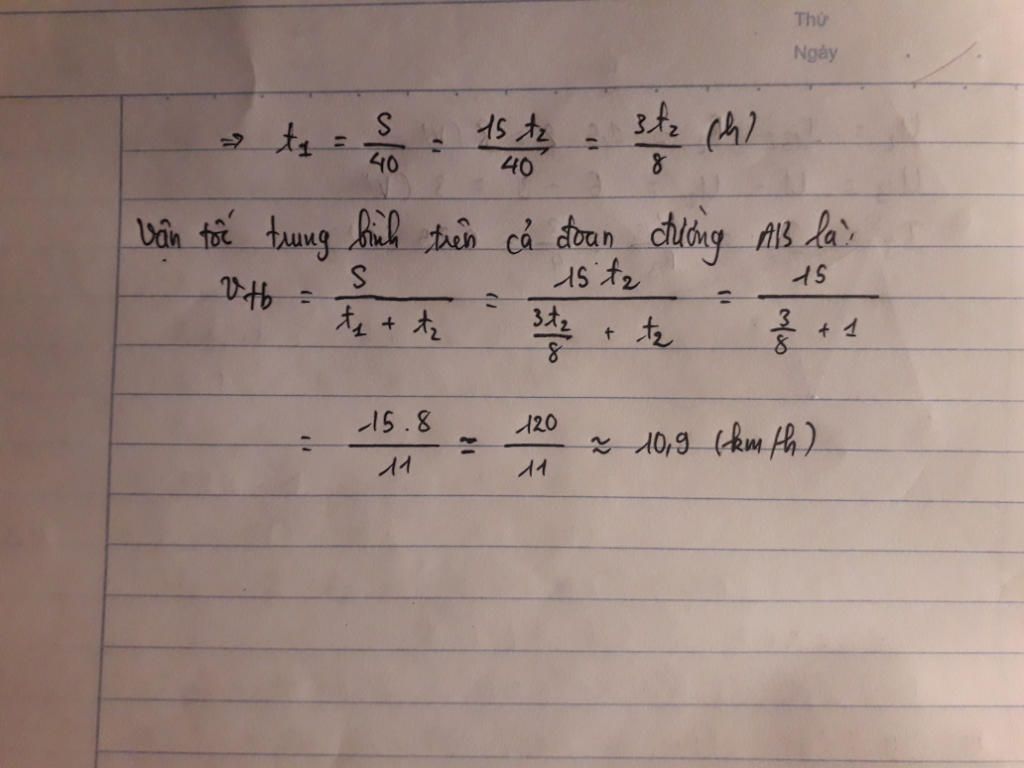 Thứ
Ngày
⇒ t₁ = S/40 = 15 t₂/40 = 3t₂/8 (h)
Vận tốc trung bình trên cả đoan đường AB là:
v_tb = S/(t₁ + t₂) = 15 t₂/(3t₂/8 + t₂) = 15/(3/8 + 1)
= 15.8/11 = 120/11 ≈ 10,9 (km/h)